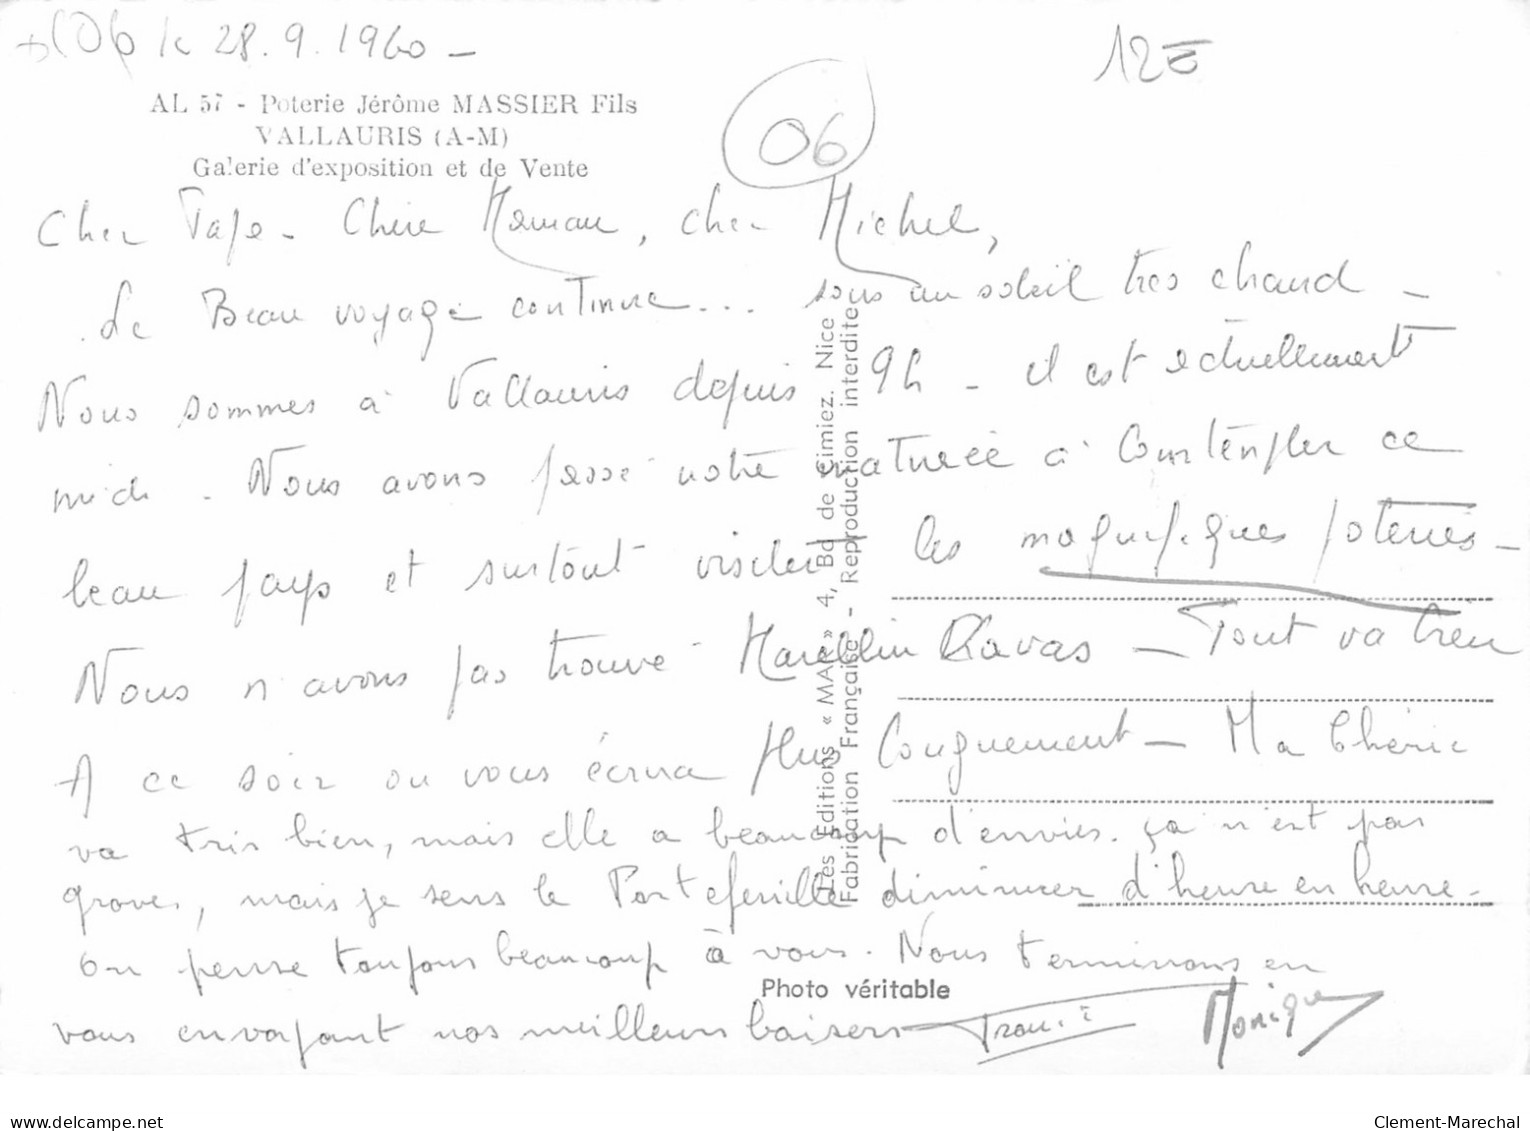 le 28.9.1960 -
12€
AL 57 - Poterie Jérôme MASSIER Fils
VALLAURIS (A-M)
Galerie d'exposition et de Vente
06
Cher Papa - Chère Maman, cher Michel,
Le Beau voyage continue... sous un soleil très chaud -
Nous sommes à Vallauris depuis 9h - il est actuellement
midi. Nous avons passé notre matinée à Contempler ce
beau pays et surtout visiter les magnifiques poteries -
Nous n'avons pas trouvé Marcellin - Tout va bien
A ce soir ou vous écrira plus Longuement - Ma Chérie
va très bien, mais elle a beaucoup d'envies. ça n'est pas
grave, mais je sens le Portefeuille diminuer d'heure en heure -
on pense toujours beaucoup à vous. Nous terminons en
vous envoyant nos meilleurs baisers
Monique
Les Editions « MAR » 4, Bd de Cimiez. Nice
Fabrication Française - Reproduction interdite
Photo véritable
delcampe.net
Clement-Marechal